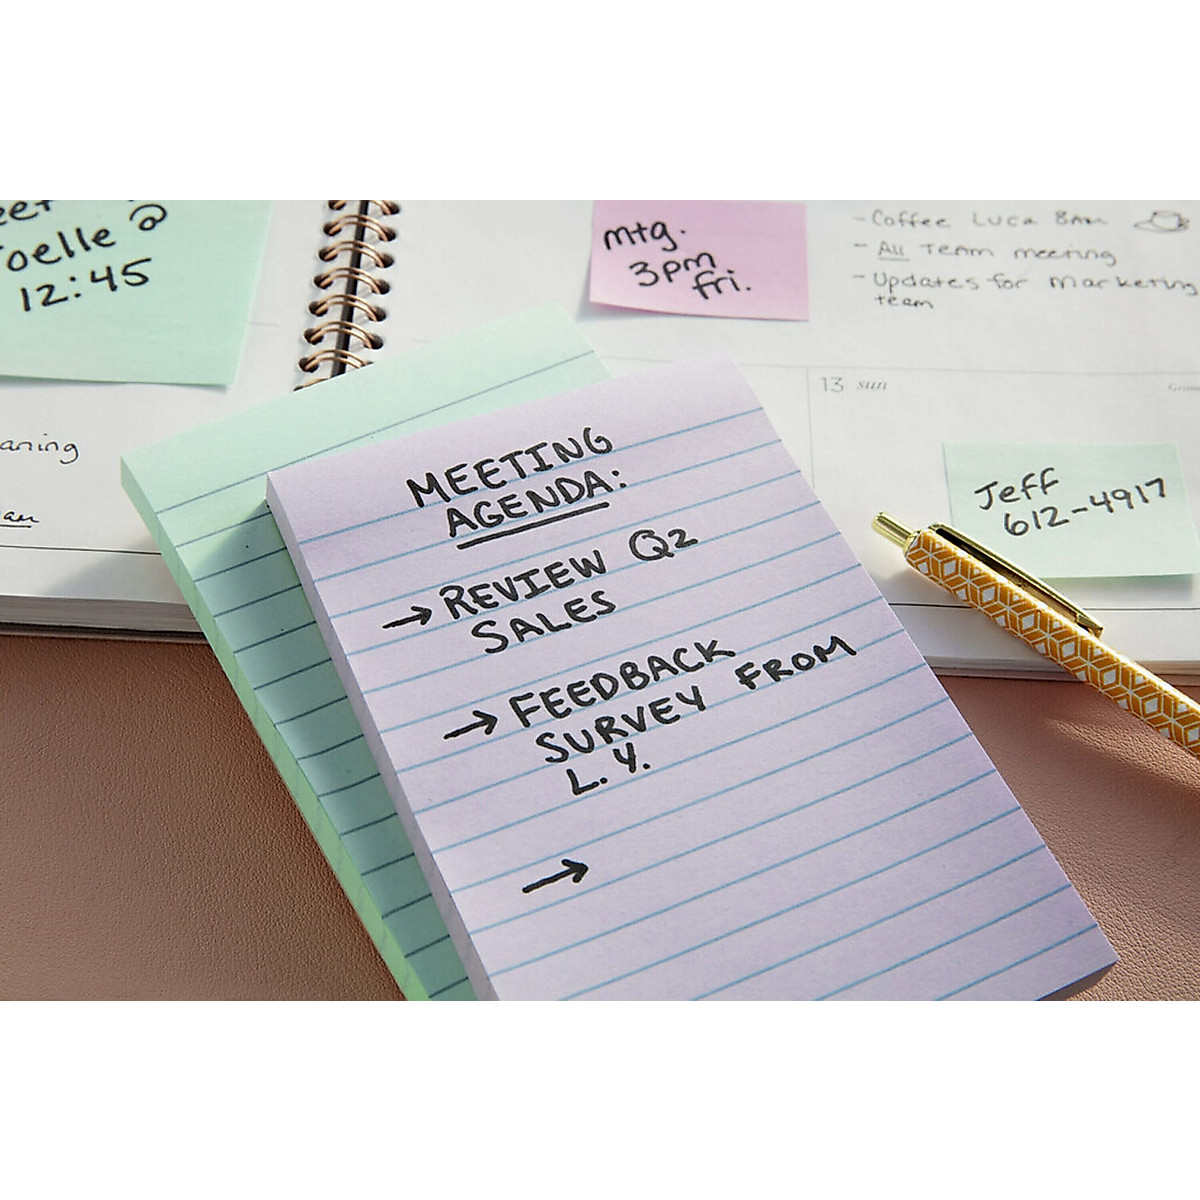 Joelle @
12:45
mtg.
3pm
fri.
- Coffee Luca 8AM
- All Team meeting
- Updates for marketing
team
13 sun
Jeff
612-4917
MEETING
AGENDA:
→ REVIEW Q2
SALES
→ FEEDBACK
SURVEY FROM
L.Y.
→